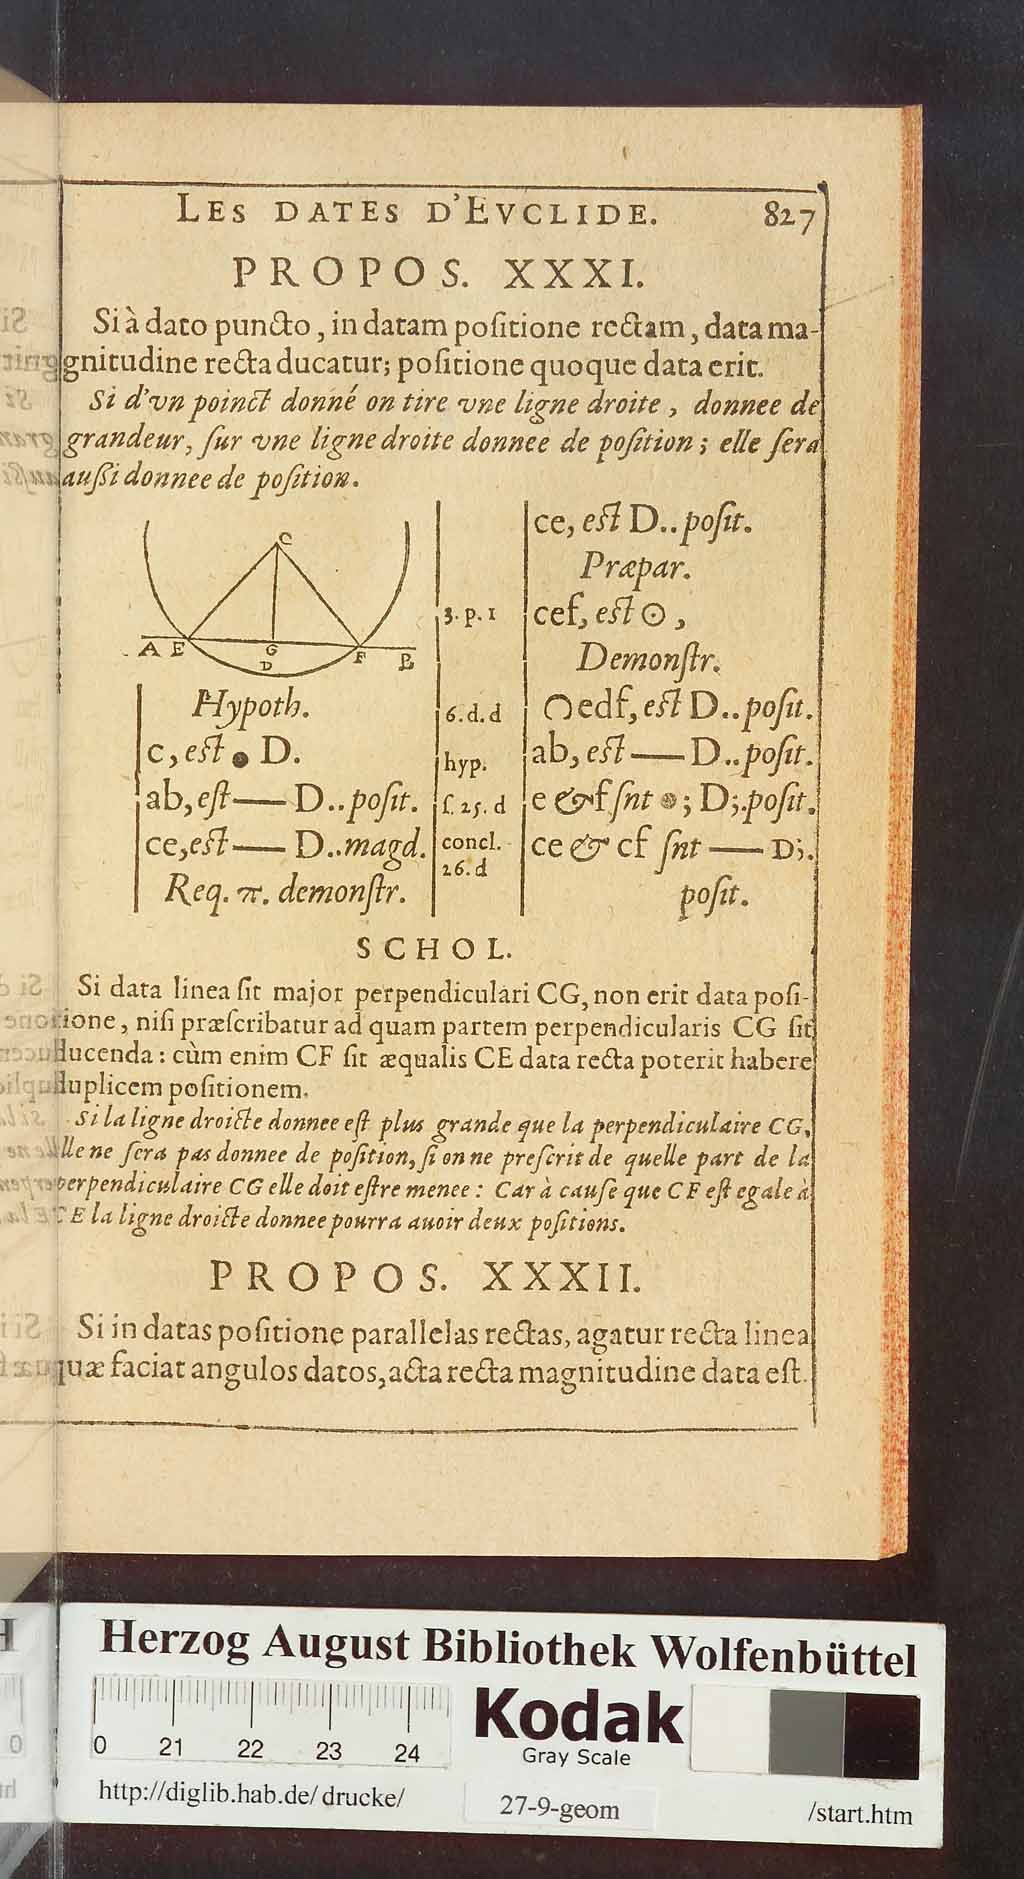 LES DATES D'EVCLIDE. 827
PROPOS. XXXI.
Si à dato puncto, in datam positione rectam, data ma-
gnitudine recta ducatur; positione quoque data erit.
Si d'vn poinct donné on tire vne ligne droite, donnee de
grandeur, sur vne ligne droite donnee de position; elle sera
aussi donnee de position.
C
A E G F B
D
Hypoth.
c, est ● D.
ab, est — D..posit.
ce, est — D..magd.
Req. π. demonstr.
ce, est D..posit.
Præpar.
3. p. 1 cef, est ⊙,
Demonstr.
6. d. d ◠edf, est D..posit.
hyp. ab, est — D..posit.
f. 25. d e & f snt ●; D;.posit.
concl. ce & cf snt — D;.
26. d posit.
SCHOL.
Si data linea sit major perpendiculari CG, non erit data posi-
tione, nisi præscribatur ad quam partem perpendicularis CG sit
ducenda: cùm enim CF sit æqualis CE data recta poterit habere
duplicem positionem.
Si la ligne droicte donnee est plus grande que la perpendiculaire CG,
elle ne sera pas donnee de position, si on ne prescrit de quelle part de la
perpendiculaire CG elle doit estre menee: Car à cause que CF est egale à
CE la ligne droicte donnee pourra auoir deux positions.
PROPOS. XXXII.
Si in datas positione parallelas rectas, agatur recta linea
quæ faciat angulos datos, acta recta magnitudine data est.
Herzog August Bibliothek Wolfenbüttel
0 21 22 23 24
Kodak
Gray Scale
http://diglib.hab.de/drucke/ 27-9-geom /start.htm